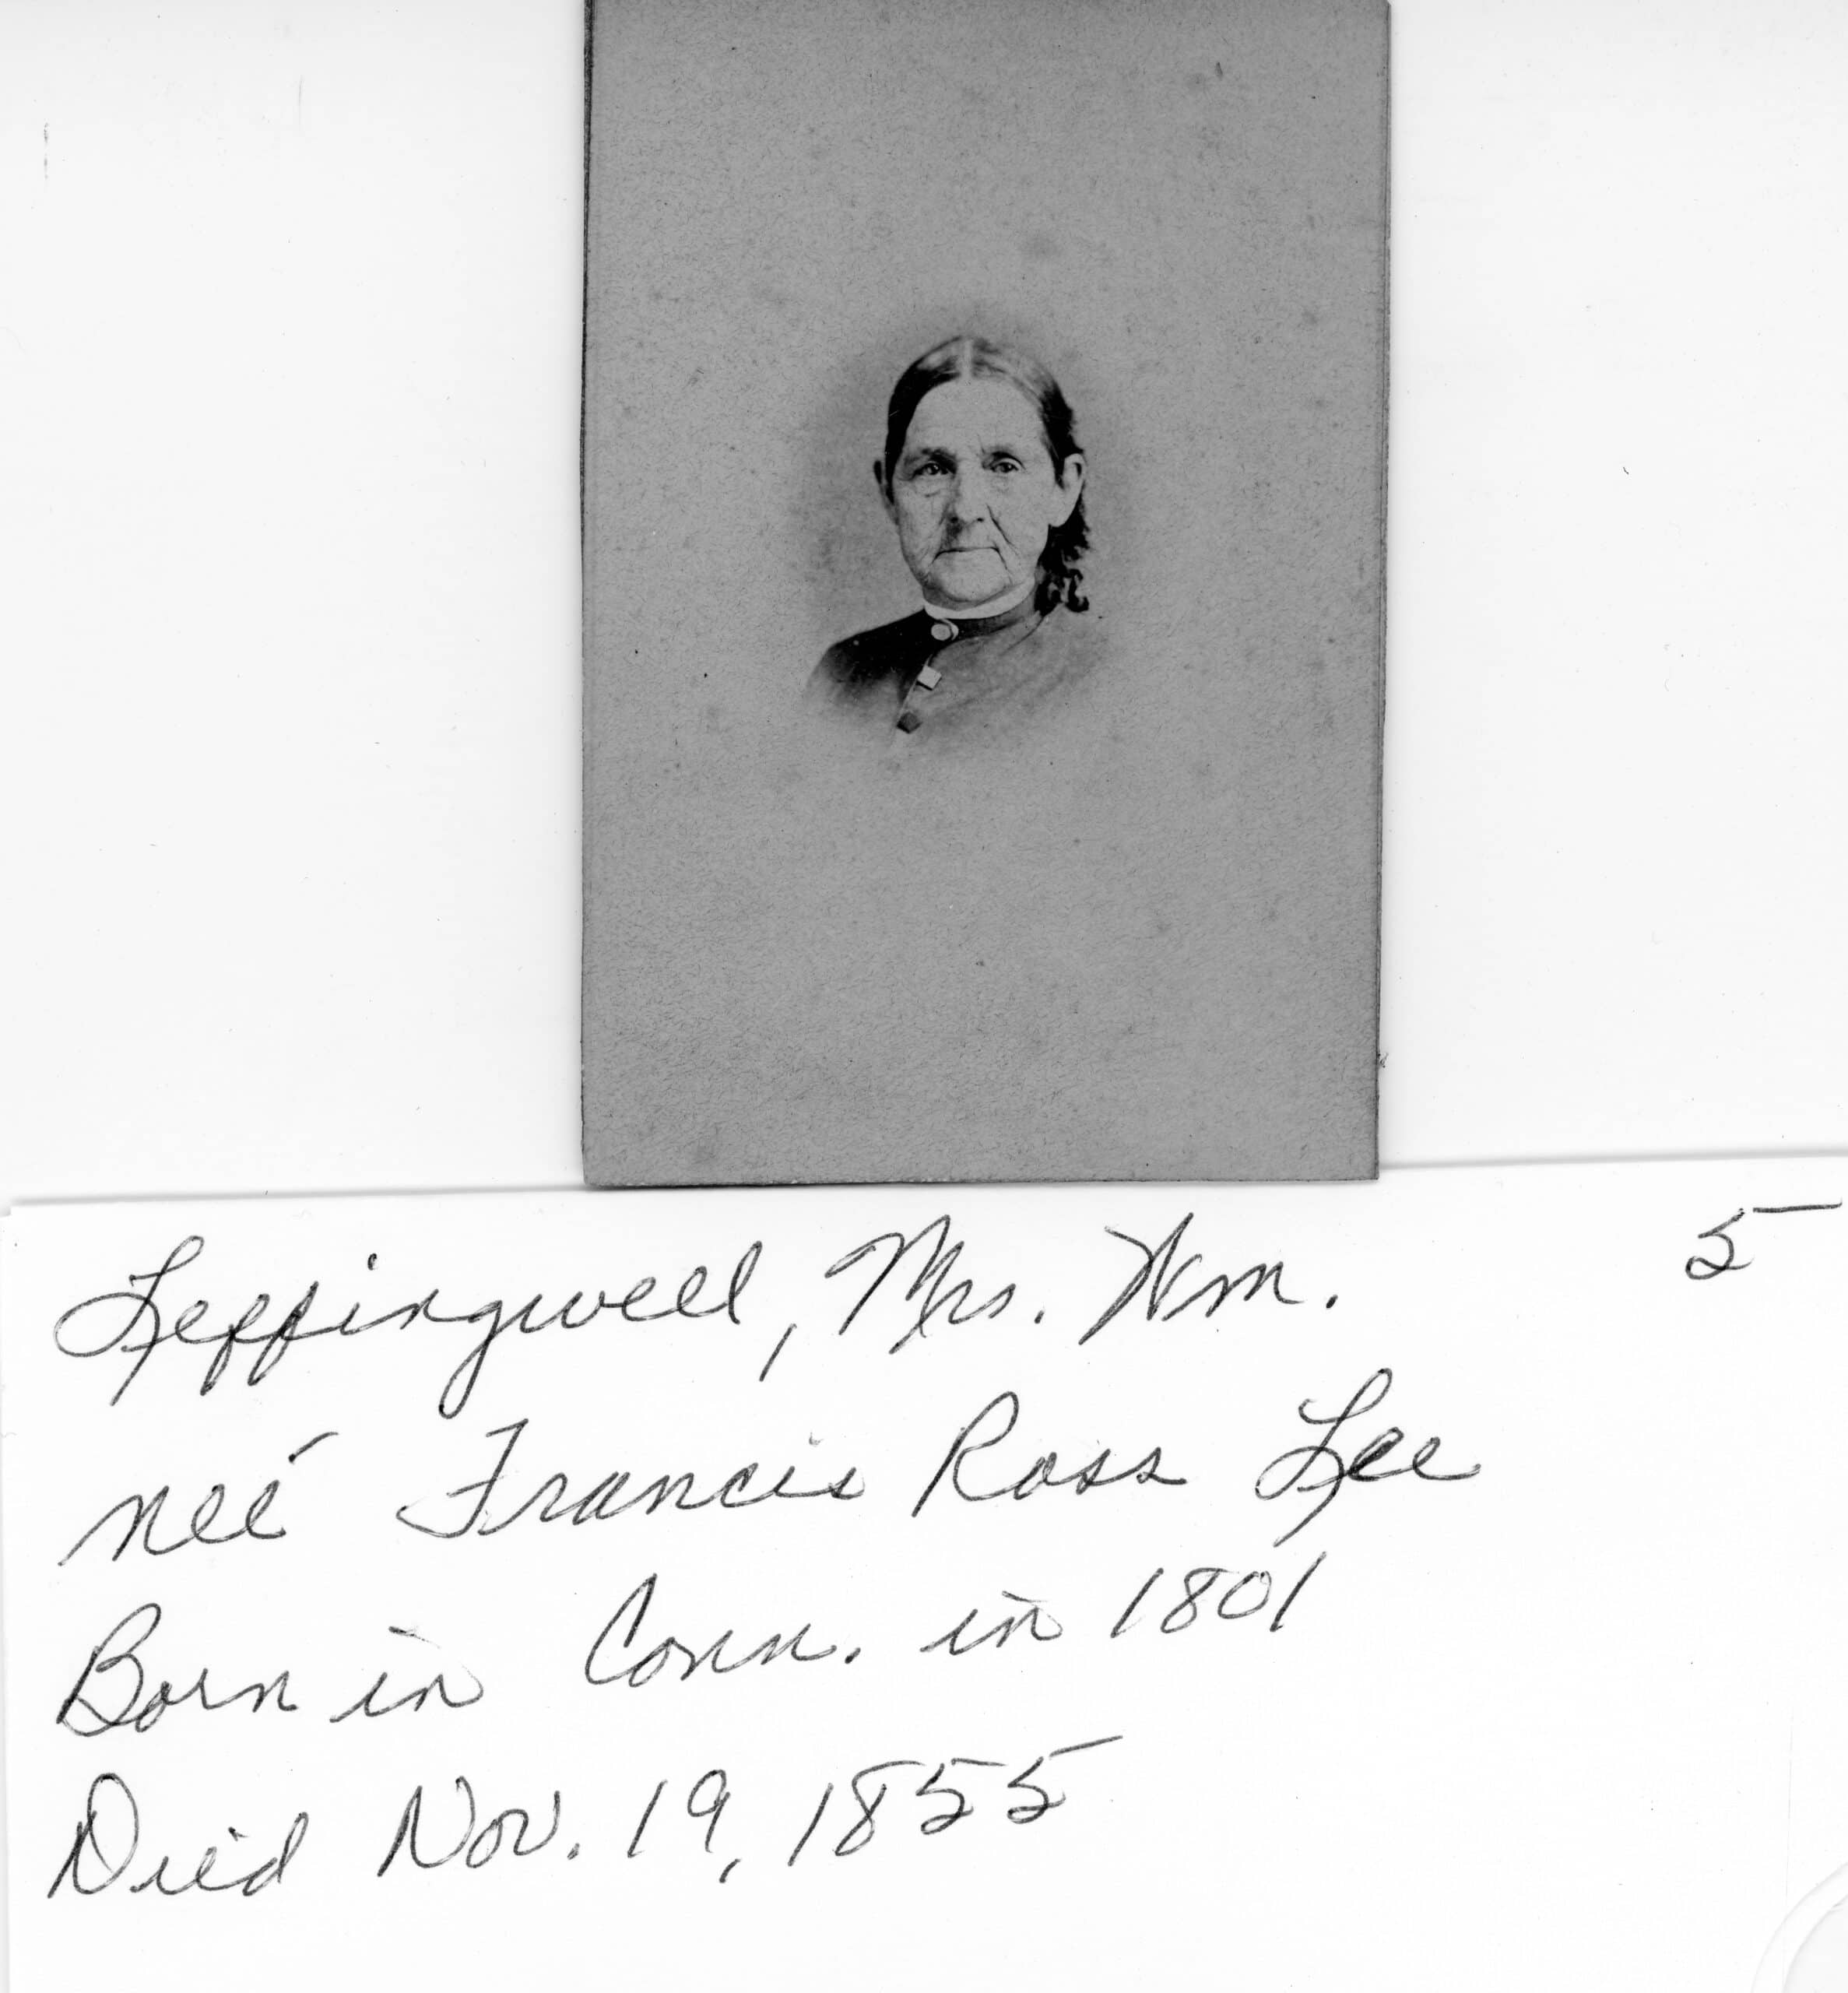 Leffingwell, Mrs. Wm. 5
neé Francis Ross Lee
Born in Conn. in 1801
Died Nov. 19, 1855